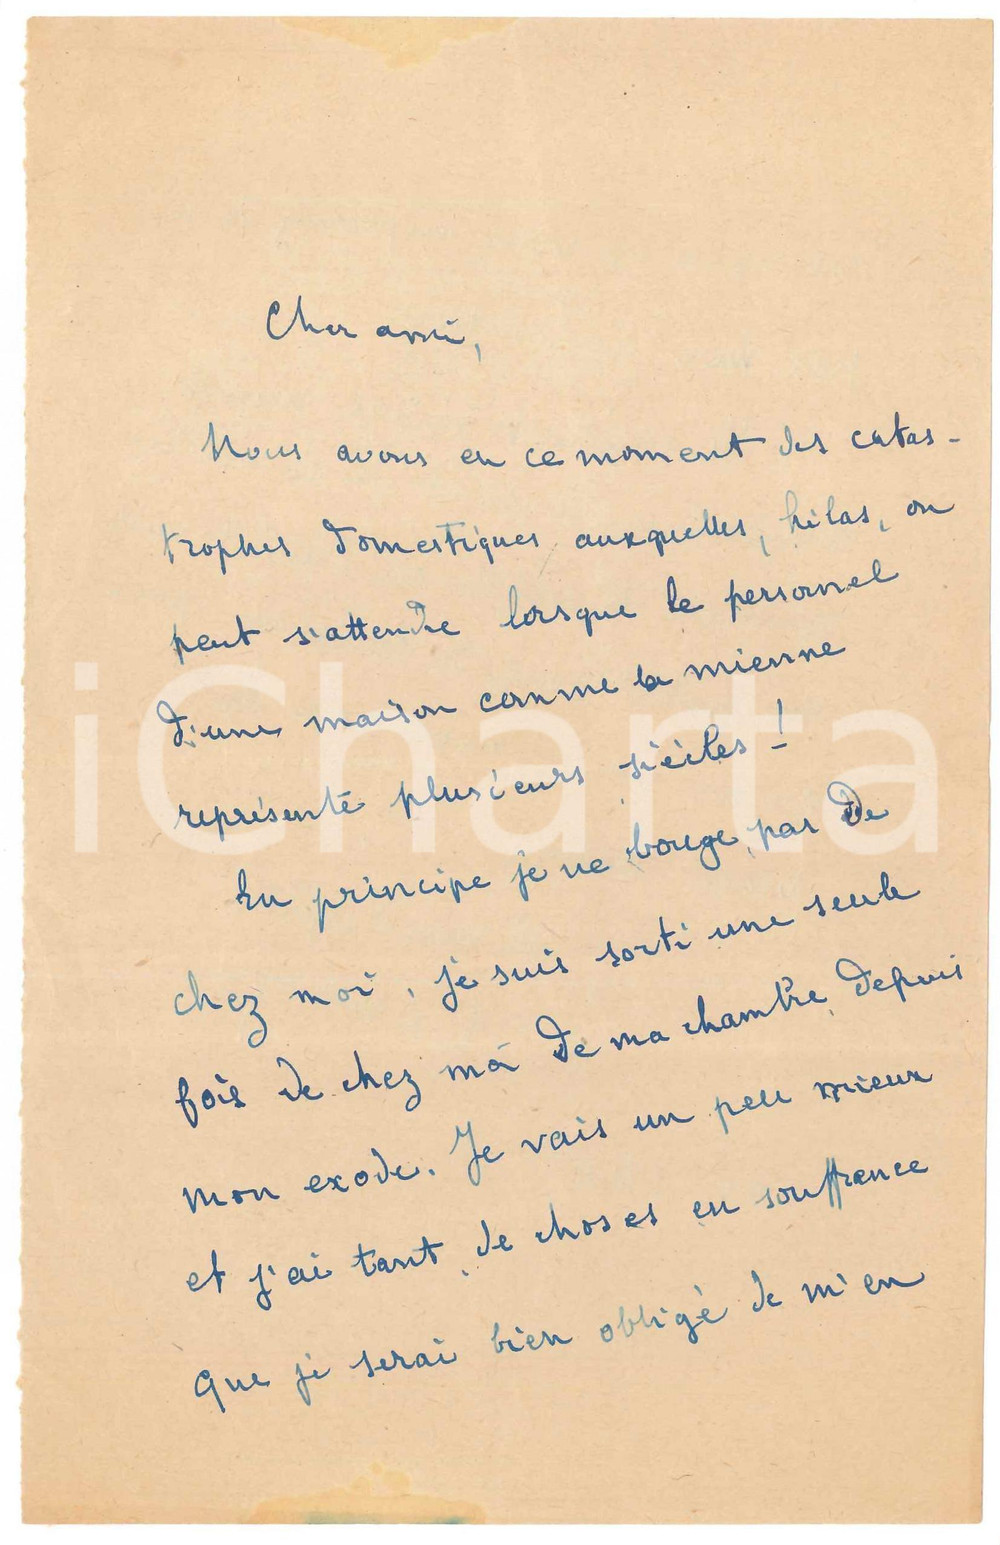 Cher ami,
Nous avons en ce moment des catas-
trophes domestiques auxquelles, hélas, on
peut s'attendre lorsque le personnel
d'une maison comme la mienne
représente plusieurs siècles !
En principe je ne bouge pas de
chez moi, je suis sorti une seule
fois de chez moi de ma chambre depuis
mon exode. Je vais un peu mieux
et j'ai tant de choses en souffrance
que je serai bien obligé de m'en
iCharta